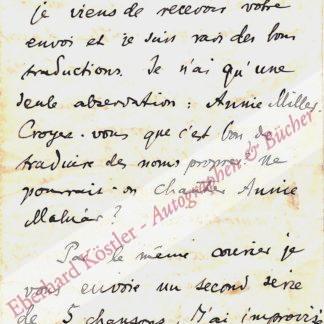 je viens de recevoir votre
envoi et je suis ravi des bons
traductions. Je n'ai qu'une
seule observation : Annie Milles
Croyez-vous que c'est bon de
traduire des noms propres. Ne
pourrait-on chanter Annie
Par le même courier je
vous envoie un second série
de 5 chansons. J'ai improvis
Eberhard Köstler - Autographen & Bücher